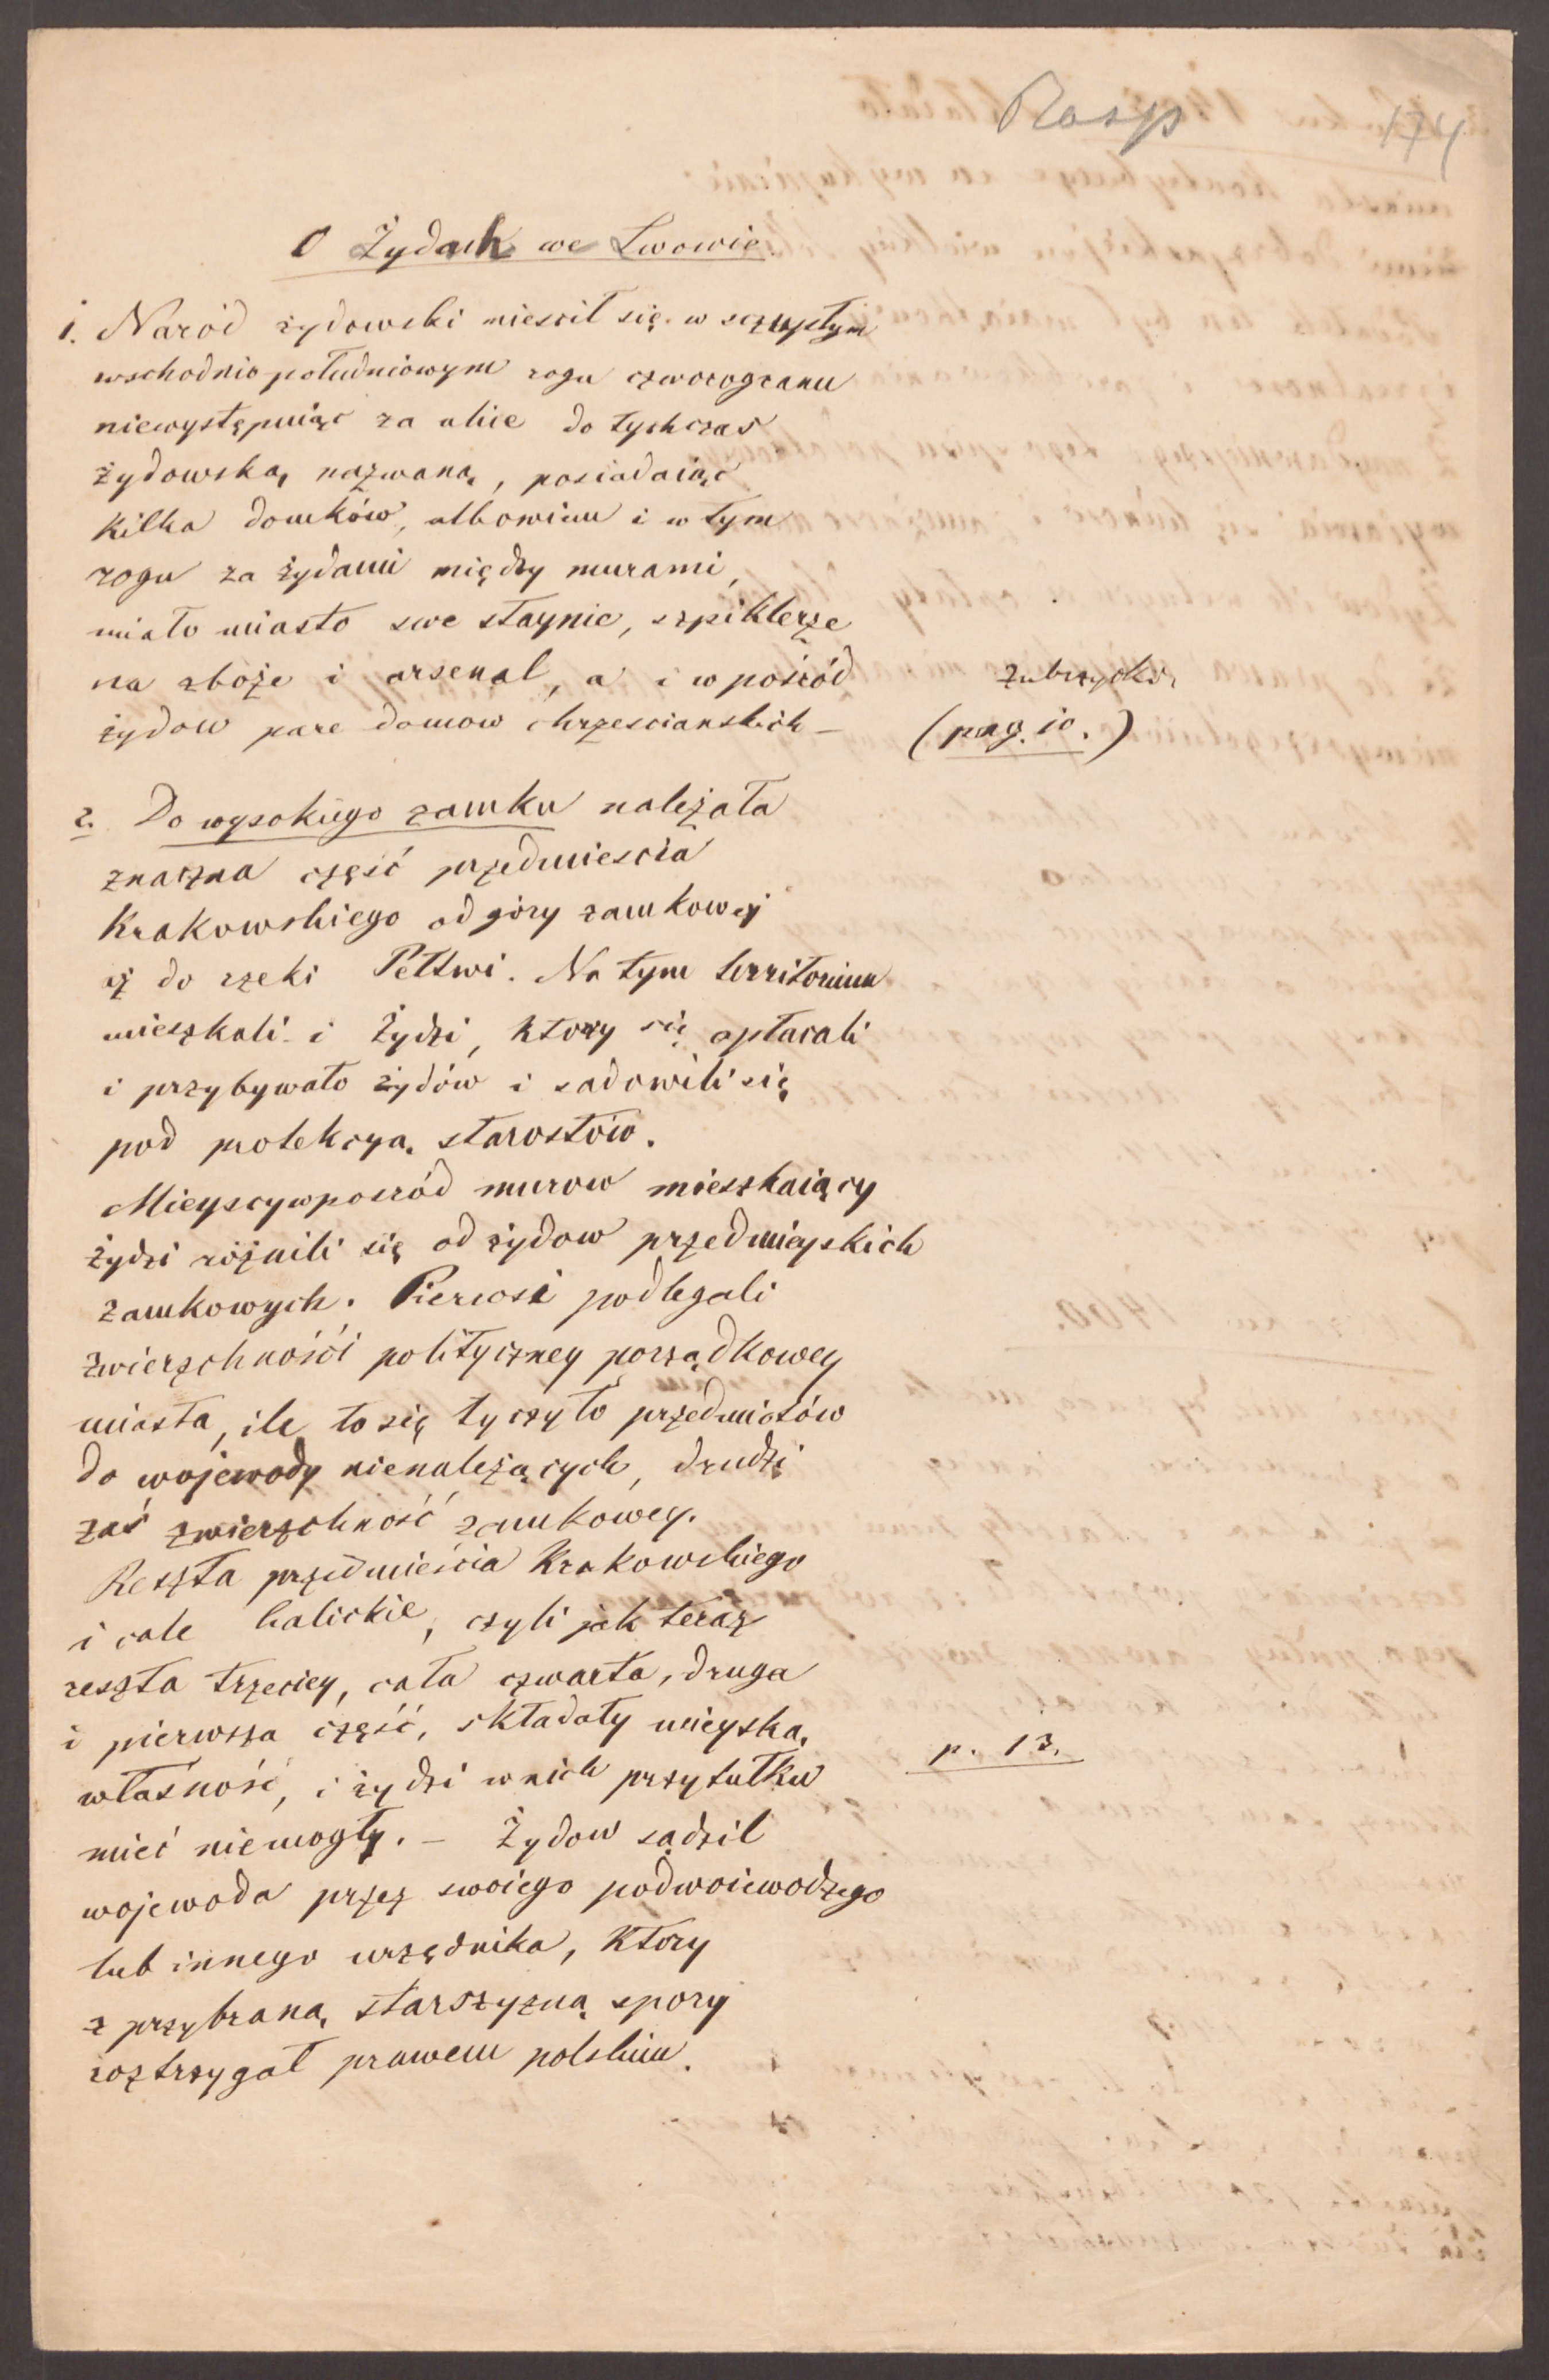 Rasp 174
O Żydach we Lwowie.
1. Naród żydowski mieścił się w szczupłym
wschodnio południowym rogu czworogranu
niewystępuiąc za ulice do tychczas
żydowską nazwaną, posiadaiąc
kilka domków, albowiem i w tym
rogu za żydami między murami,
miało miasto swe staynie, szpiklerze
na zboże i arsenał, a i w pośród
żydow pare domow chrzescianskich –
Zubrzycki,
(pag. 10.)
2. Do wysokiego zamku należała
znaczna część przedmiescia
Krakowskiego od góry zamkowej
aż do rzeki Pełtwi. Na tym territorium
mieszkali i Żydzi, ktorzy się opłacali
i przybywało żydów i sadowili się
pod protekcyą starostów.
Mieyscy wposród murow mieszkaiący
żydzi różnili się od żydow przedmieyskich
zamkowych. Pierwsi podlegali
zwierzchności polityczney porządkowey
miasta, ile to się tyczyło przedmiotów
do wojewody nienależących, drudzi
zaś zwierzchność zamkowey.
Reszta przedmieścia Krakowskiego
i całe halickie, czyli jak teraz
reszta trzeciey, cała czwarta, druga
i pierwsza część, składały mieyską
własność, i żydzi w nich przytułku
mieć niemogły. – Żydow sądził
p. 13.
wojewoda przez swoiego podwoiewodzego
lub innego urzędnika, ktory
z przybraną starszyzną spory
roztrzygał prawem polskim.